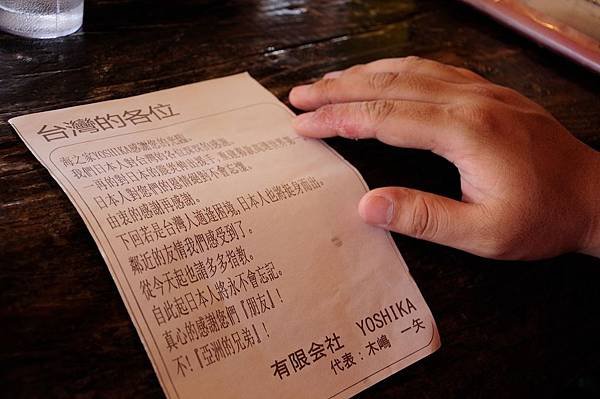 台灣的各位
海之家YOSHIKA感謝您的光臨。
我們日本人對台灣的
一再的對日本的
日本人對您們的恩情絕對不會忘懷。
由衷的感謝再感謝。
下回若是台灣人遭逢困境，日本人也將挺身而出。
鄰近的友情我們感受到了。
從今天起也請多多指教。
自此起日本人將永不會忘記。
真心的感謝您們『朋友』！
不！『亞洲的兄弟』！
有限会社 YOSHIKA
代表：木嶋 一矢